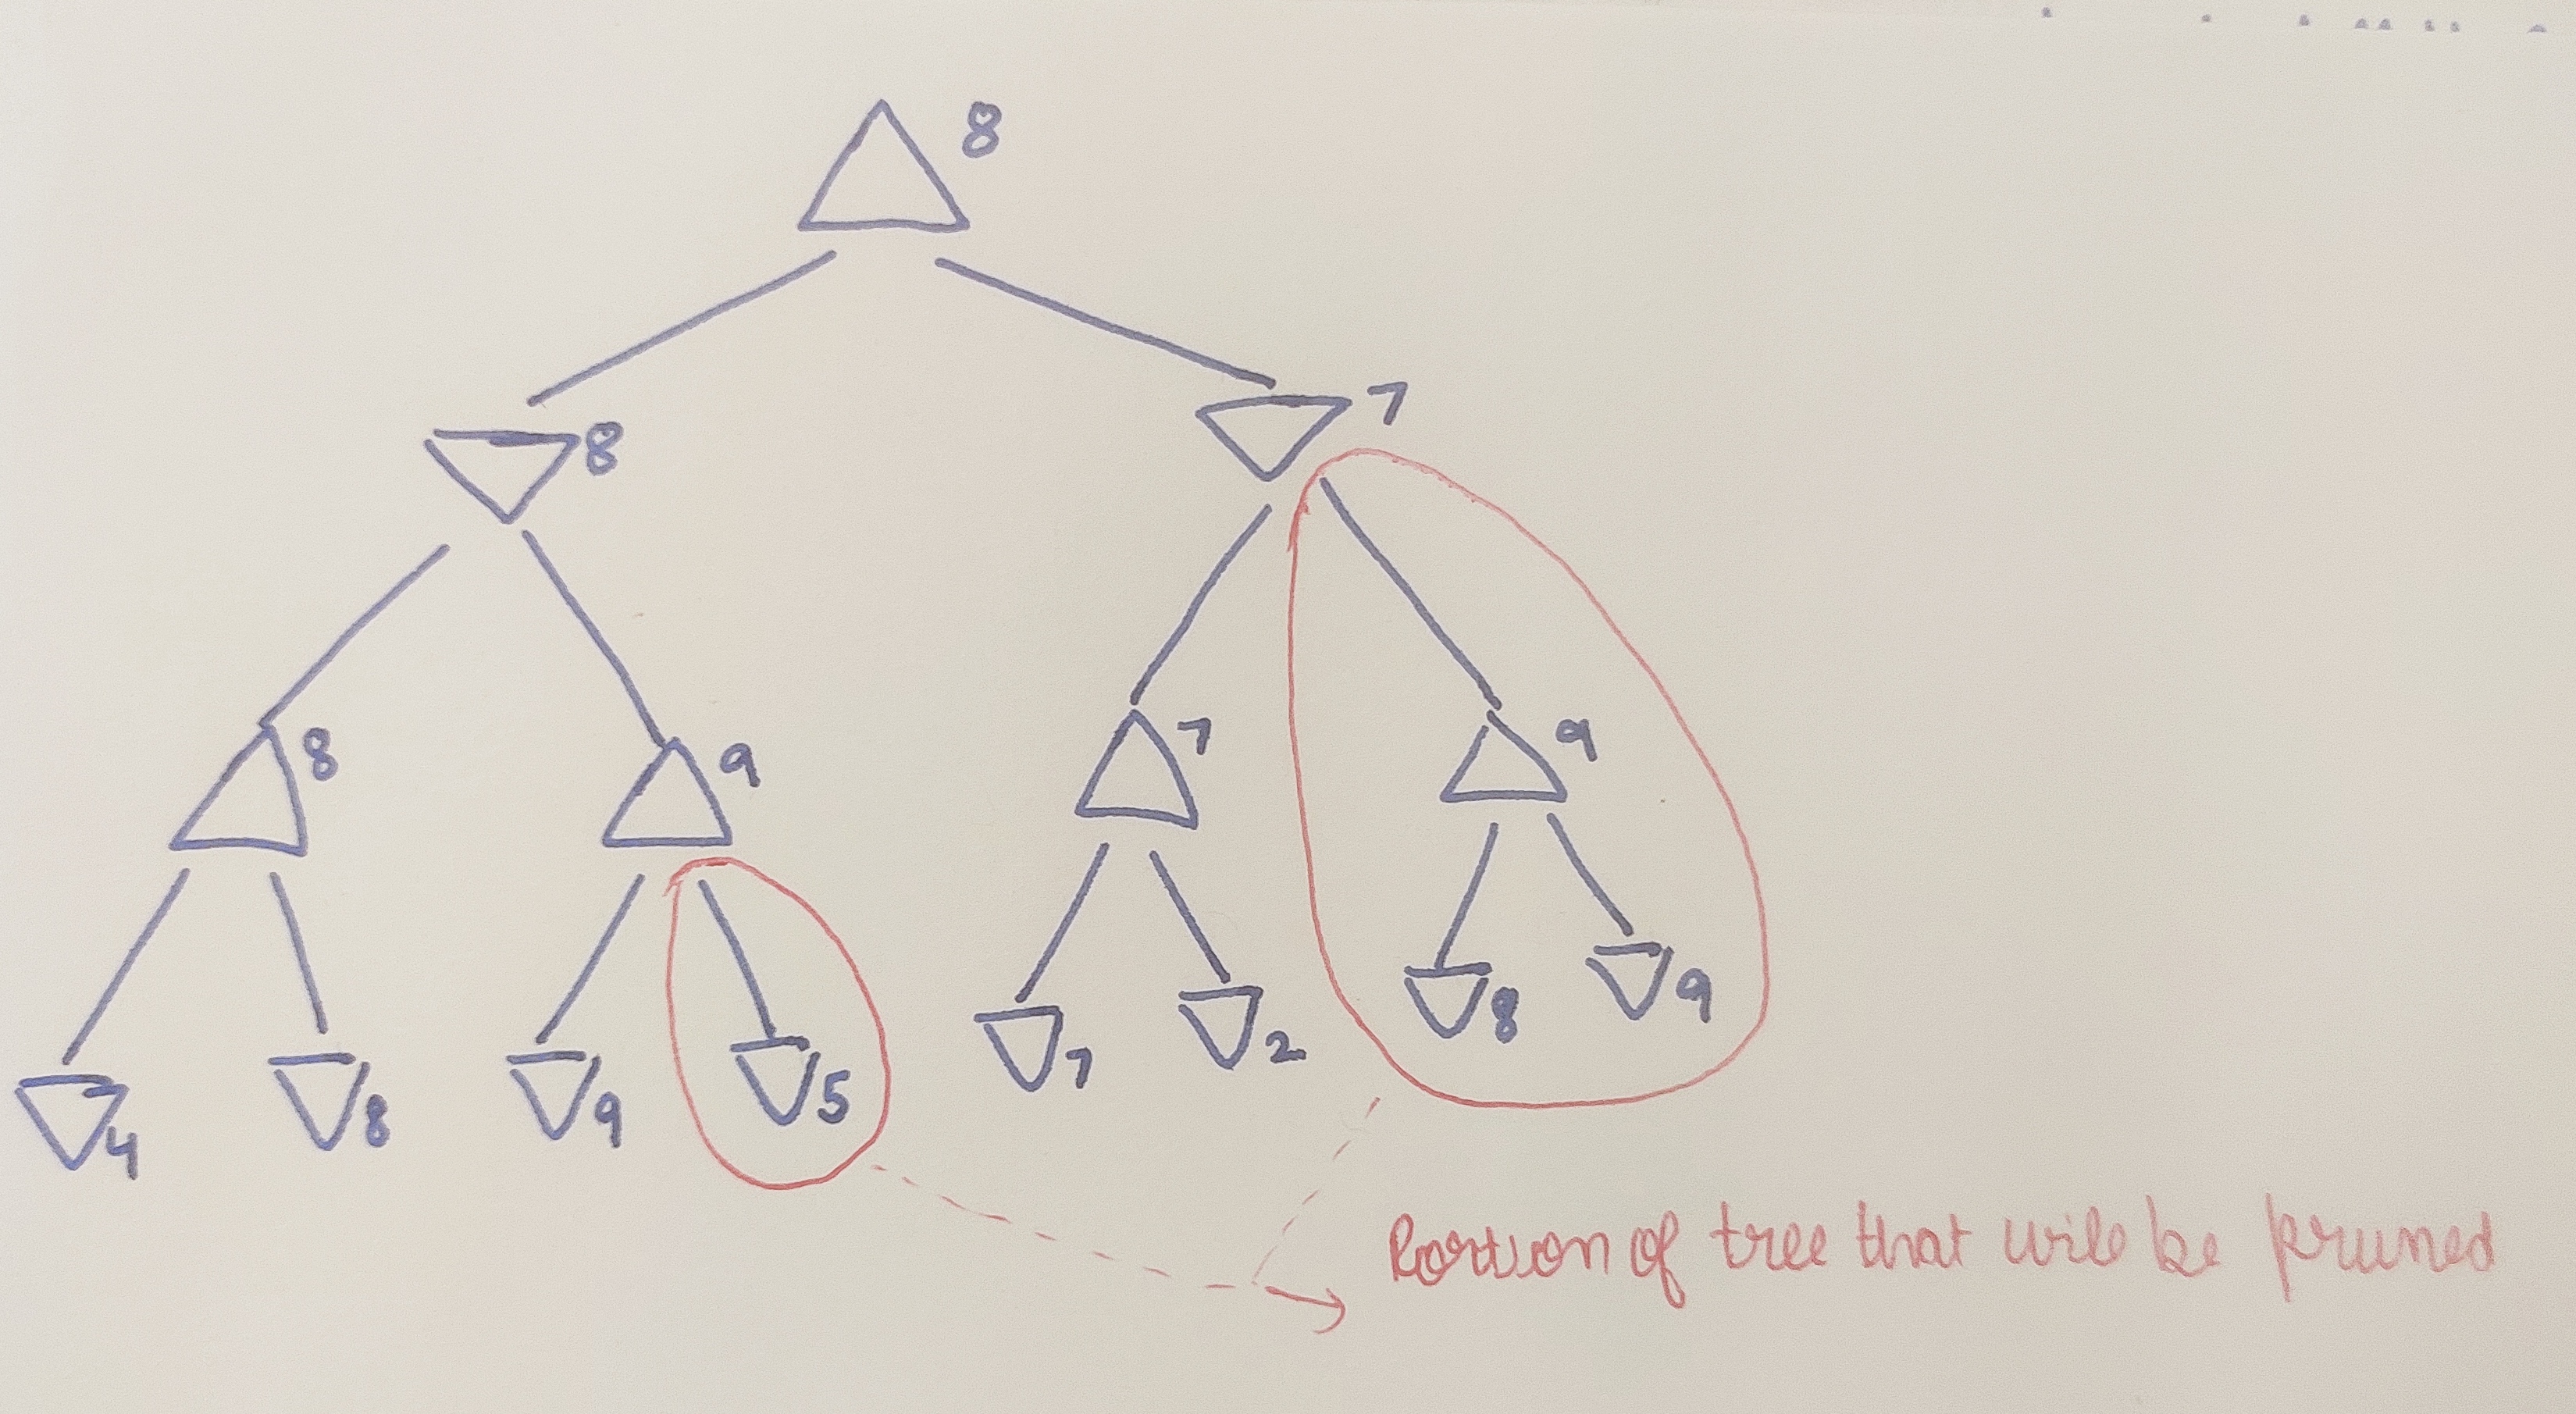 8
8
7
8
9
7
9
4
8
9
5
7
2
8
9
Portion of tree that will be pruned